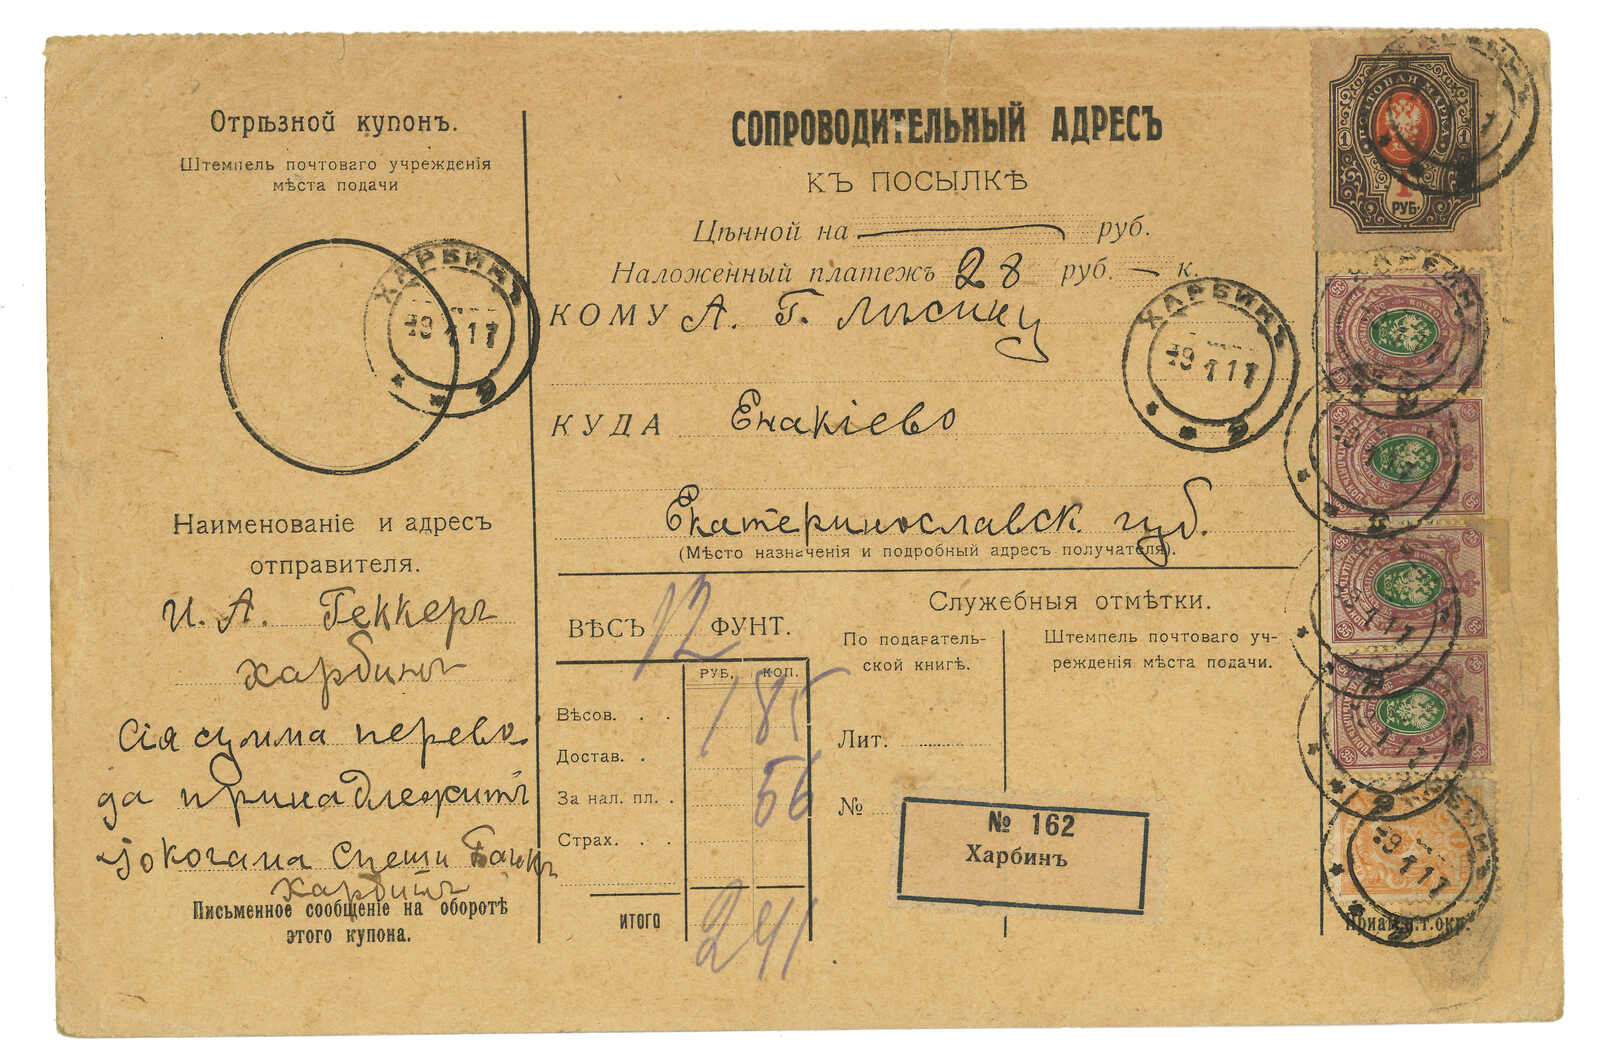 Отрѣзной купонъ.
Штемпель почтоваго учрежденія
мѣста подачи
ХАРБИНЪ
-9 1 11
Наименованіе и адресъ
отправителя.
И. А. Геккеръ
Харбинъ
Сія сумма перево
да принадлежитъ
Іокогама Спеши Банкъ
Харбинъ
Письменное сообщеніе на оборотѣ
этого купона.
СОПРОВОДИТЕЛЬНЫЙ АДРЕСЪ
КЪ ПОСЫЛКѢ
Цѣнной на руб.
Наложенный платежъ 28 руб. — к.
КОМУ А. Г. Лысику
КУДА Енакіево
Екатеринославск губ.
(Мѣсто назначенія и подробный адресъ получателя).
ХАРБИНЪ
-9 1 11
ВѢСЪ 12 ФУНТ.
РУБ. КОП.
Вѣсов. . . 1 85
Достав. .
За нал. пл. . 56
Страх. . .
ИТОГО 2 41
Служебныя отмѣтки.
По подаватель-
ской книгѣ.
Лит.
№
Штемпель почтоваго уч-
режденія мѣста подачи.
№ 162
Харбинъ
ПОЧТОВАЯ МАРКА
1 1
1
РУБ.
35
35
35
35
ХАРБИНЪ
-9 1 11
Пріам. п.т.окр.